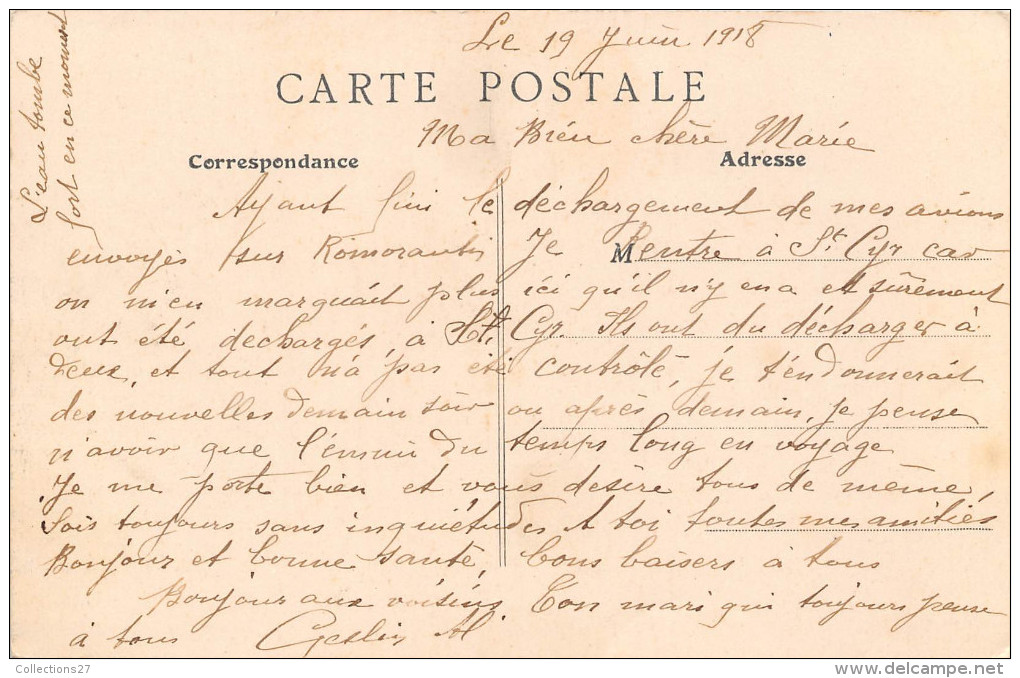 Le 19 Juin 1918
CARTE POSTALE
Ma Bien chère Marie
Correspondance
Adresse
Ayant fini le déchargement de mes avions
envoyés sur Romorantin Je Rentre à St Cyr car
M
on m'en marquait plus ici qu'il n'y en a et sûrement
ont été dechargés à St Cyr. Ils ont du décharger à
deux, et tout n'a pas été contrôlé, je t'endonnerait
des nouvelles demain soir ou après demain, je pense
n'avoir que l'ennui du temps long en voyage
Je me porte bien et vous désire tous de même,
Sois toujours sans inquiétudes A toi toutes mes amitiés
Bonjour et bonne santé, bons baisers à tous
Bonjour aux voisins, Ton mari qui toujours pense
à tous Geslin Al
L'eau tombe
fort en ce moment
Collections27
www.delcampe.net